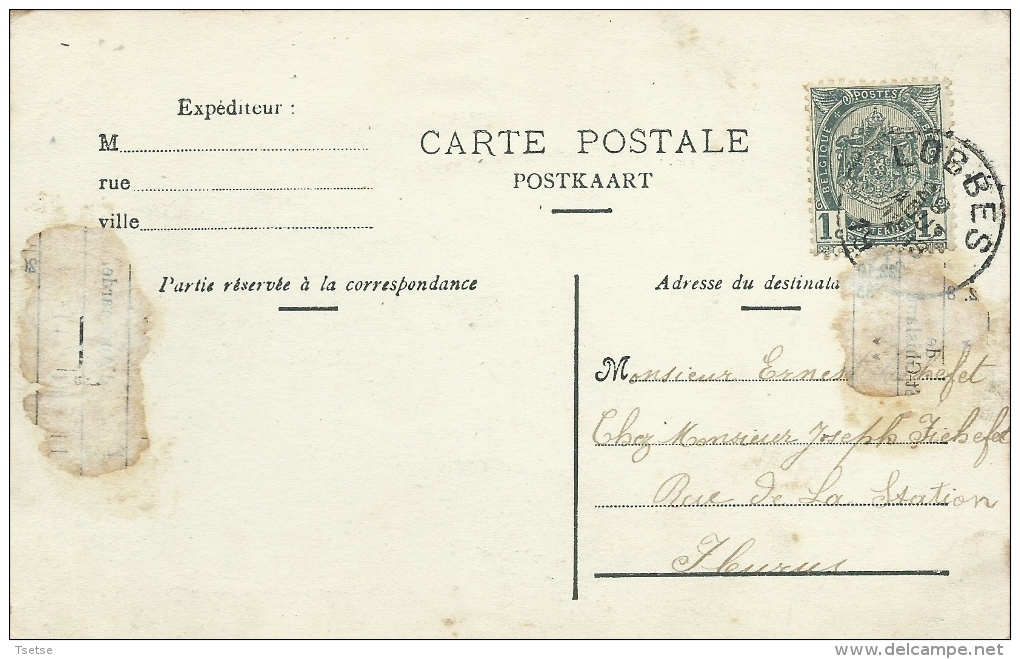 Expéditeur :
M
rue
ville
CARTE POSTALE
POSTKAART
POSTES
BELGIQUE
1 1
LOBBES
Partie réservée à la correspondance
Adresse du destinata
Monsieur Ernes hefet
Chez Monsieur Joseph Fichefet
Rue de La Station
Fleurus
Tsetse
www.delcampe.net